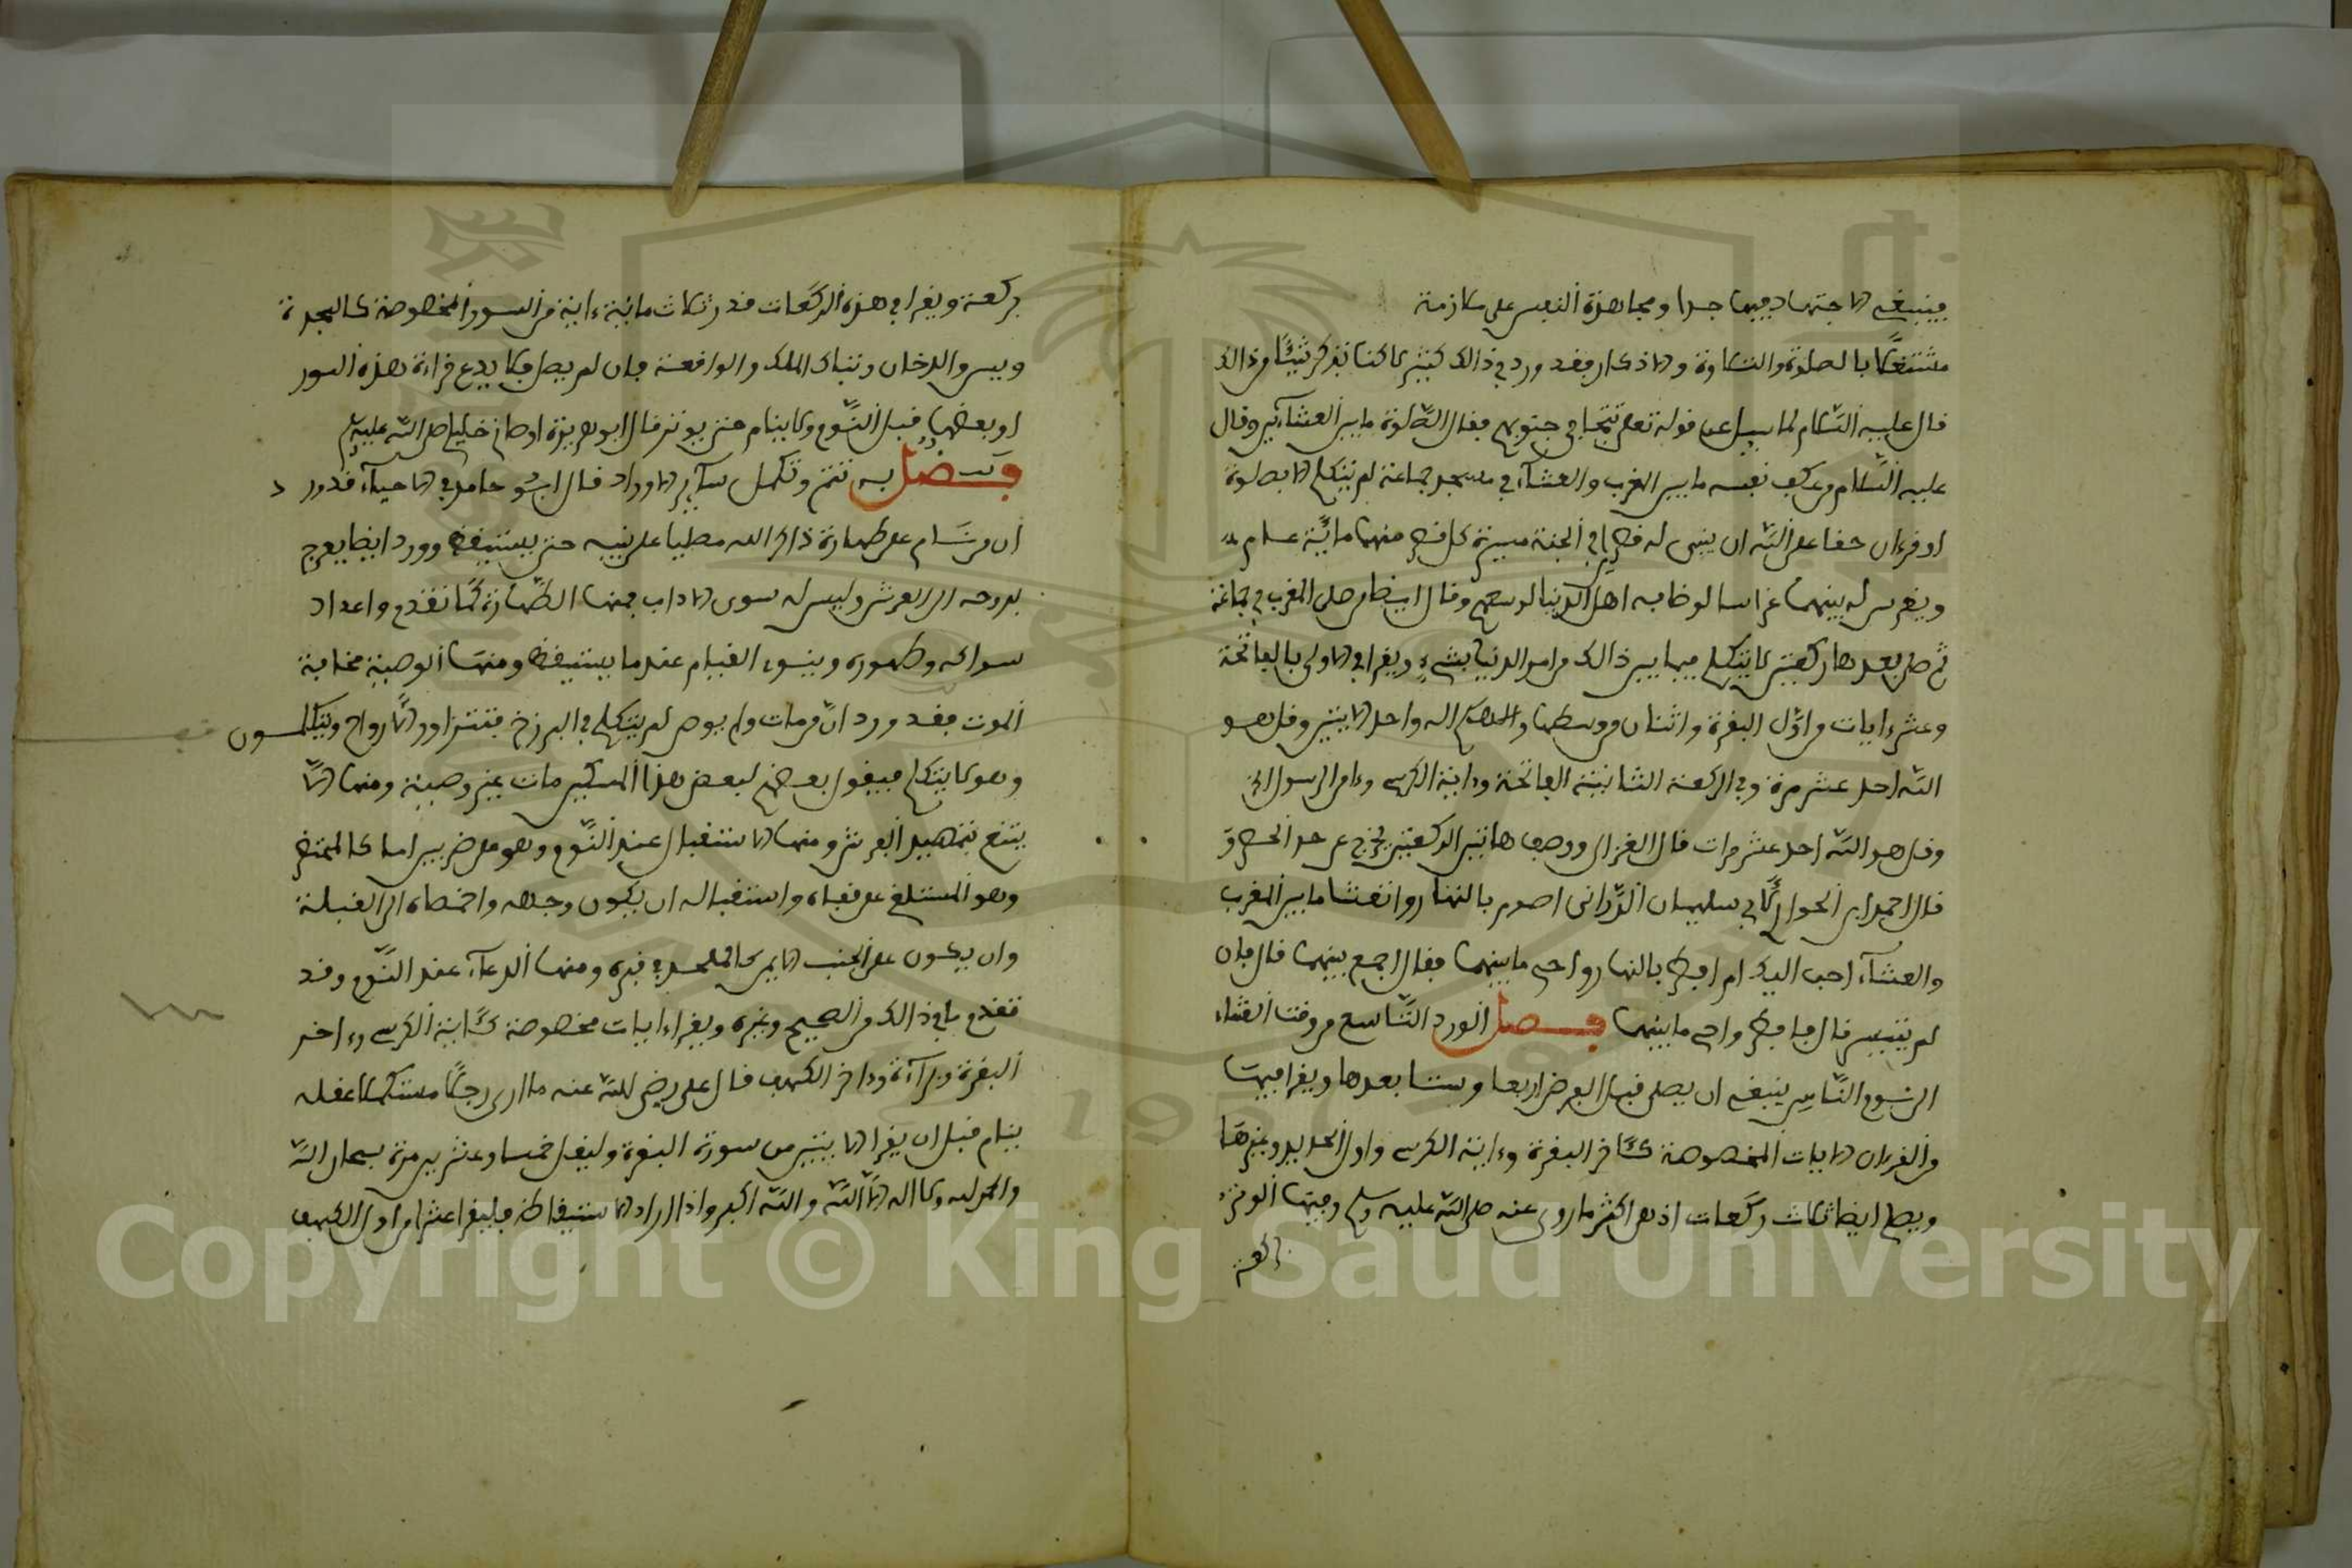 فينبغي الاجتهاد فيها جدا ومجاهدة النفس على ملازمة
مشتغلا بالصلوة والتلاوة والاذكار فقد ورد في ذالك كثير لاكنا نذكر شيئا من ذالك
قال عليه السّلام لما سيل عن قوله تعلى تتجافى جنوبهم فقال الصّلوة ما بين العشآئين وقال
عليه السّلام من عكف نفسه ما بين المغرب والعشآء في مسجد جماعة لم يتكلم الا بصلوة
او قرءان حقا على اللّه ان يبني له قصرين في الجنة مسيرة كل قصر منهما مائة عام
ويغرس له بينهما غراسا لو طافه اهل الدنيا لوسعهم وقال ايضا من صلى المغرب في جماعة
ثم صلى بعدها ركعتين لا يتكلم فيما بين ذالك من امر الدنيا بشيء ويقرا في الاولى بالفاتحة
وعشر ايات من اوّل البقرة واثنان من وسطها والاهكم اله واحد الايتين وقل هو
اللّه احد عشر مرة وفي الركعة الثانية الفاتحة وءاية الكرسي وءامن الرسول الخ
وقل هو اللّه احد عشر مرات قال الغزالي ووصف هاتين الركعتين يخرج عن حد الحصر و
قال احمد ابن الحواري لابي سليمان الدّراني اصوم بالنهار واتعشا ما بين المغرب
والعشآء احب اليك ام افطر بالنهار واحي ما بينهما فقال اجمع بينهما قال فان
لم يتيسر قال فافطر واحي ما بينهما فصل الورد التّاسع من وقت العشاء
الى نوم النّاس ينبغي ان يصلي قبل الفرض اربعا وستا بعدها ويقرا فيهما
من القرءان الايات المخصوصة كئاخر البقرة وءاية الكرسي واول الحديد وغيرها
ويصلي ايضا ثلاث ركعات اذ هي اكثر ما روي عنه صلى اللّه عليه وسلم وفيها الوتر
ركعة
بركعة ويقرا في هذه الركعات قدر ثلاث مائة ءاية من السور المخصوصة كالسجدة
ويس والدخان وتبارك الملك والواقعة فان لم يصل فلا يدع قراءة هذه السور
او بعضها قبل النّوم ولا ينام حتى يوتر قال ابو هريرة اوصاني خليلي صلى اللّه عليه وسلم
فصل به تتم وتكمل سآئر الاوراد قال ابو حامد في الاحياء قد ورد
ان من نام على طهارة ذاكرا لله مصليا على نبيه حتى يستيقظ وورد ايضا يعرج
بروحه الى العرش وليس له سوى الاداب فمنها الطّهارة كما تقدم واعداد
سواكه وطهوره وينوي القيام عند ما يستيقظ ومنها الوصية مخافة
الموت فقد ورد انّ من مات ولم يوص لم يتكلم في البرزخ فتتزاور الارواح ويتكلمون
وهو لا يتكلم فيقول بعضهم لبعض هذا المسكين مات بغير وصية ومنها الّا
يتنعم بتمهيد الفرش ومنها الاستقبال عند النّوم وهو على ضربين اما كالمحتضر
وهو المستلقي على قفاه واستقباله ان يكون وجهه واخمصاه الى القبلة
وان يكون على الجنب الايمن كالملحد في قبره ومنها الدعآء عند النّوم وقد
تقدم ما في ذالك من الصحيح وغيره ويقرا ايات مخصوصة كئاية الكرسي وءاخر
البقرة وءاخر الكهف قال علي رضي اللّه عنه ما ارى رجلا مستكملا عقله
ينام قبل ان يقرا الايتين من سورة البقرة وليقل خمسا وعشرين مرة سبحان اللّه
والحمد لله ولا اله الّا اللّه واللّه اكبر واذا اراد الاستيقاظ فليقرا عشرا من اول الكهف
Copyright © King Saud University